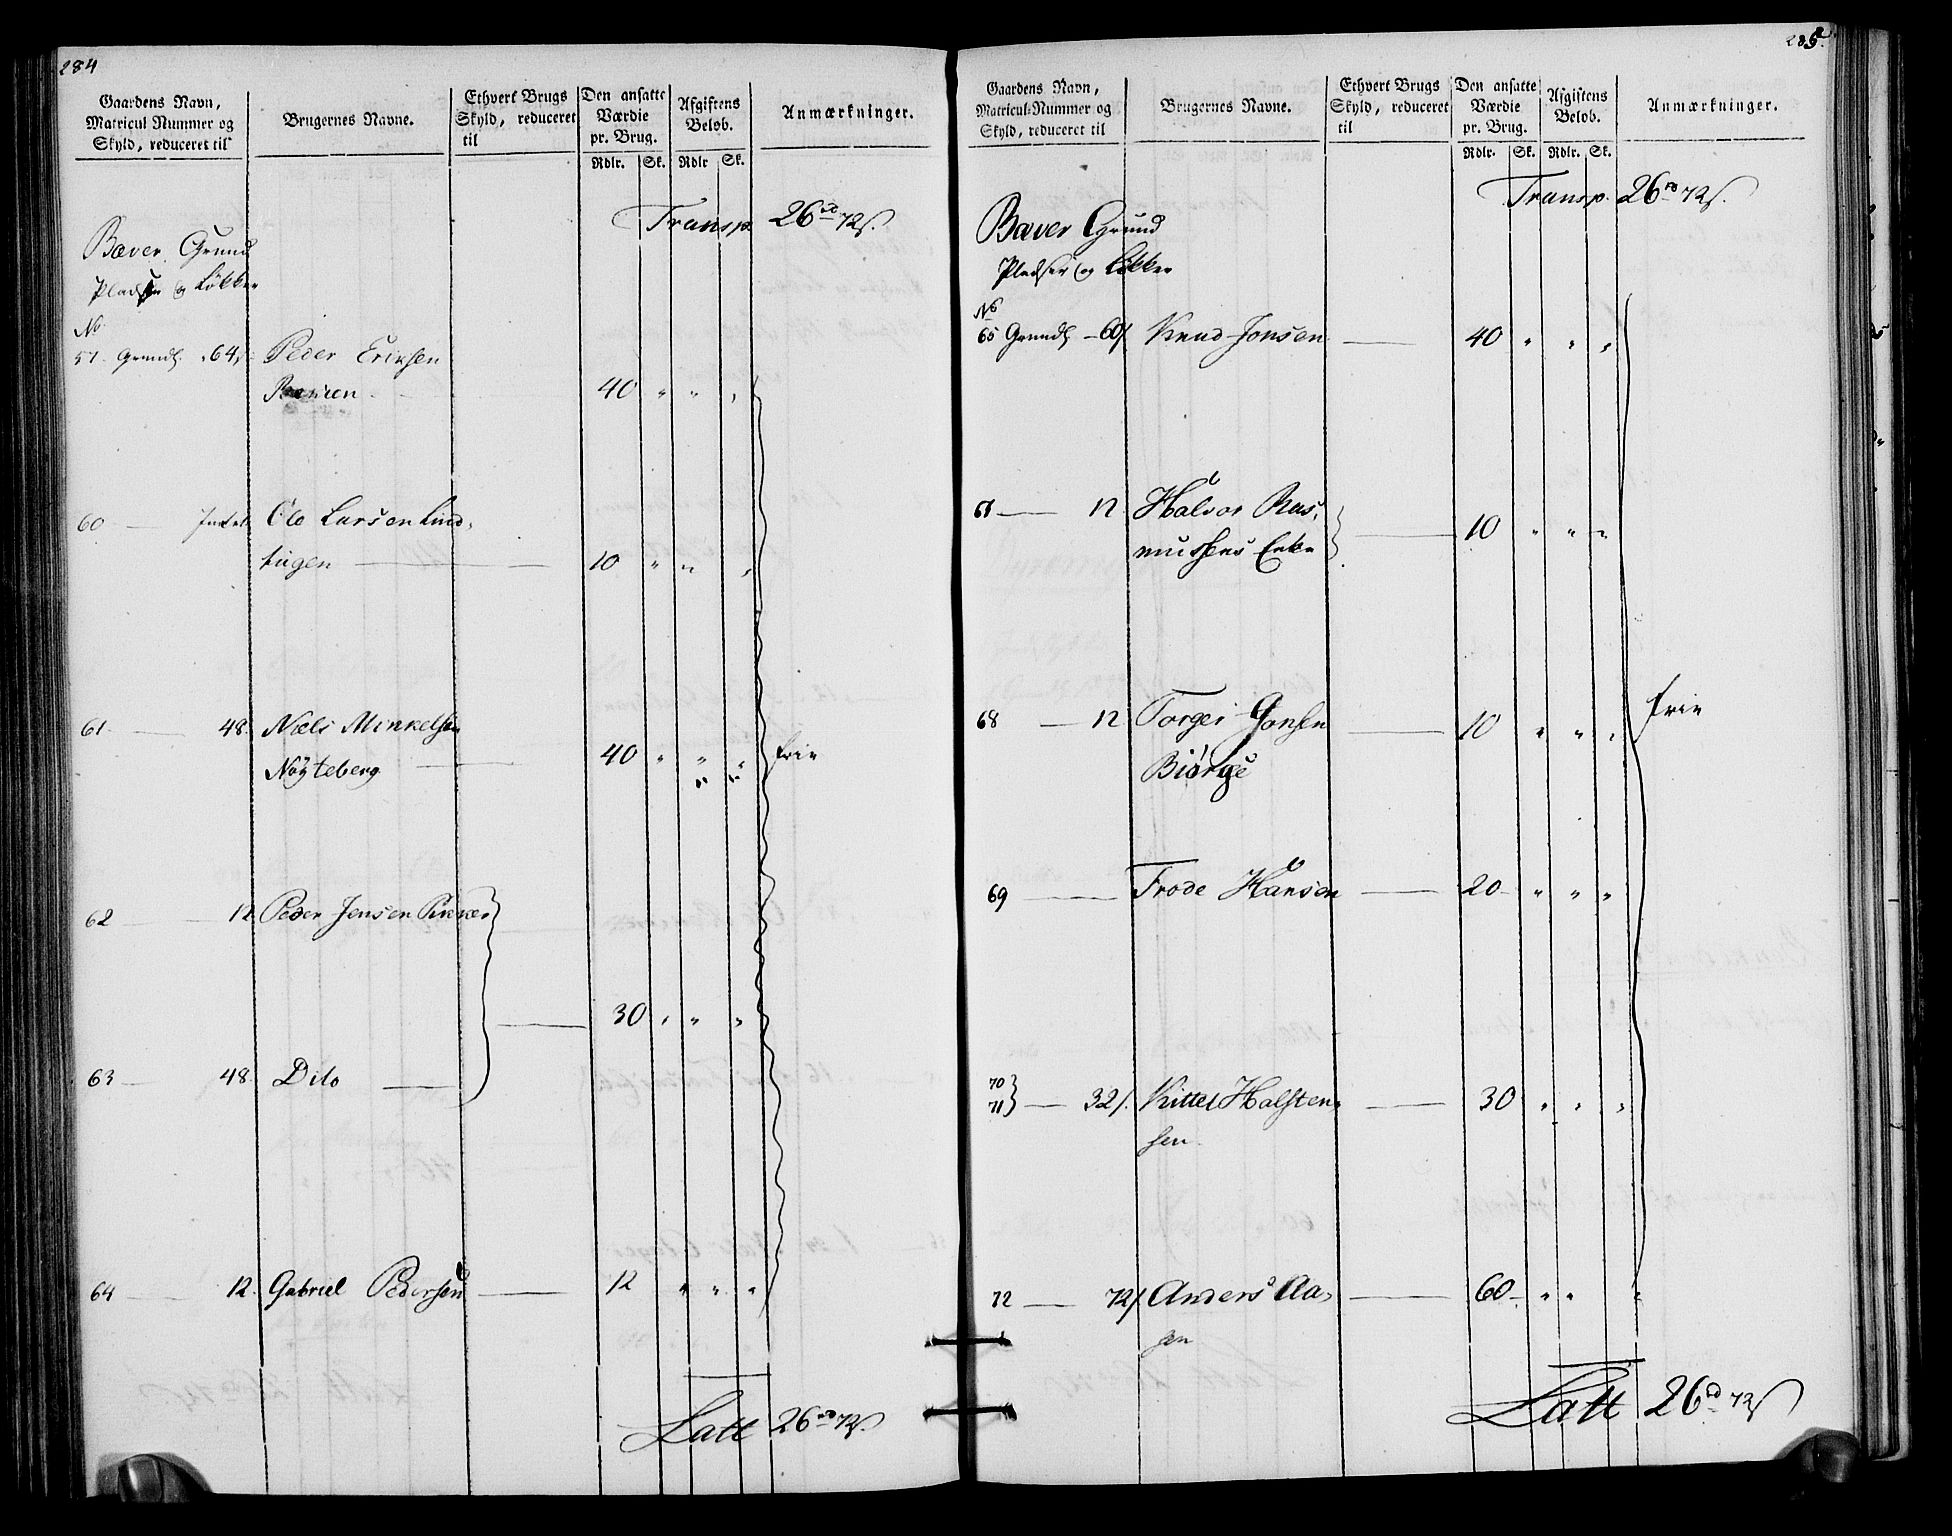 284
Gaardens Navn,
Matricul Nummer og
Skyld, reduceret til
Brugernes Navne.
Ethvert Brugs
Skyld, reduceret
til
Den ansatte
Værdie
pr. Brug.
Afgiftens
Beløb.
Anmærkninger.
Rdlr. Sk. Rdlr Sk.
Transp. 26 rd 72 s.
Bæver Grund
Pladser og Løkker
No
57. Grundl. 64 Peder Eriksen
40 " " "
60 Ole Larsen Lind-
tugen 10 " " "
61 48. Niels Minkelsen
Nöÿteberg 40 " " " frie
62 12 Peder Jensen
30 " " "
63 48. Dito
64 12. Gabriel Pedersen 12 " " "
Latt 26 rd 72 s.
285.
Gaardens Navn,
Matricul-Nummer og
Skyld, reduceret til
Brugernes Navne.
Ethvert Brugs
Skyld, reduceret
til
Den ansatte
Værdie
pr. Brug.
Afgiftens
Beløb.
Anmærkninger.
Rdlr. Sk. Rdlr. Sk.
Transp. 26 rd 72 s.
Bæver Grund
Pladser og Løkker
No
65 Grundl. 60 Knud Jonsen 40 " " "
12 Halvor Ras-
mussens Enke 10 " " "
68 12 Torger Jonsen 10 " " " frie
Biörge
69 Frode Hansen 20 " " "
70
71 32 Kittel Halsten- 30 " " "
sen
72 72 Anders Aa- 60 " " "
sen
Latt 26 rd 72 s